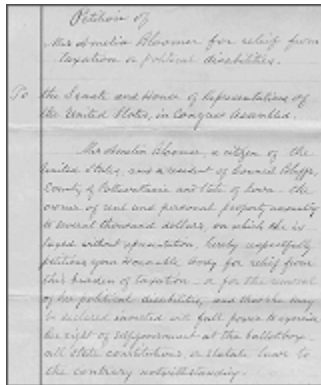 Petition of
Mrs Amelia Bloomer for relief from
taxation or political disabilities.
To the Senate and House of Representatives of
the United States, in Congress Assembled.
Mrs Amelia Bloomer, a citizen of the
United States, and a resident of Council Bluffs,
County of Pottawattamie and State of Iowa - the
owner of real and personal property amounting
to several thousand dollars, on which she is
taxed without representation, hereby respectfully
petitions your Honorable body for relief from
this burden of taxation - or for the removal
of her political disabilities, and that she may
be declared invested with full power to exercise
her right of self government at the ballot box
all state constitutions, or statute laws to
the contrary notwithstanding.